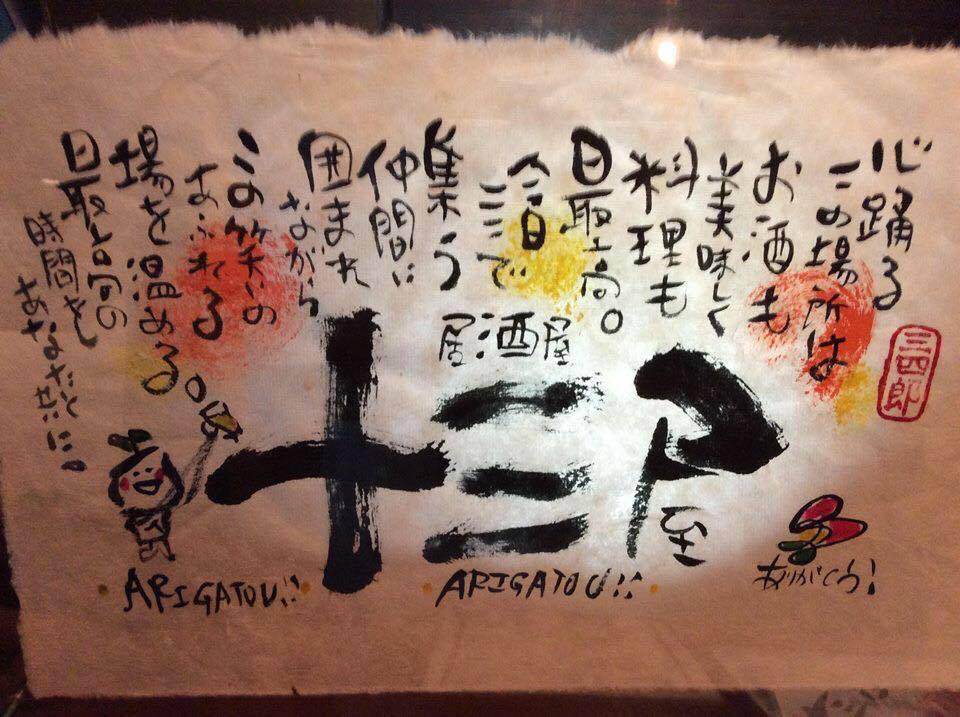 心踊る
この場所は
お酒も
美味しく
料理も
最高。
今日
ここで
集う
仲間に
囲まれ
ながら
この笑いの
あふれる
場を温める。
最高の
時間を
あなたと共に。
三四郎
居酒屋
十三屋
ARIGATOU!!
ARIGATOU!!
ありがとう!